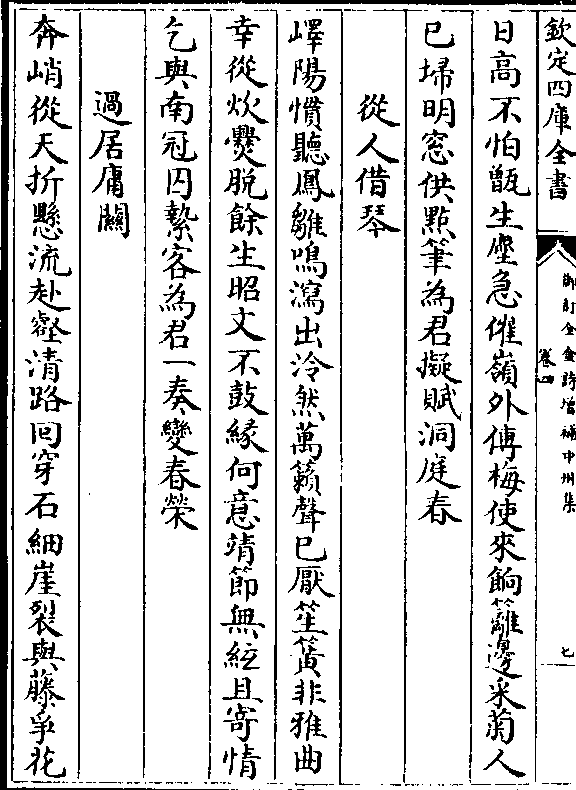 欽定四庫全書
御訂全金詩增補中州集
卷四
七
日高不怕甑生塵急催嶺外傳梅使來餉籬邊采菊人
已埽明窓供點筆為君擬賦洞庭春
從人借琴
嶧陽慣聽鳳雛鳴瀉出泠然萬籟聲已厭笙簧非雅曲
幸從炊㸑脱餘生昭文不鼓緣何意靖節無絃且寄情
乞與南冠囚縶客為君一奏變春榮
過居庸關
奔峭從天拆懸流赴壑清路回穿石細崖裂與藤爭花